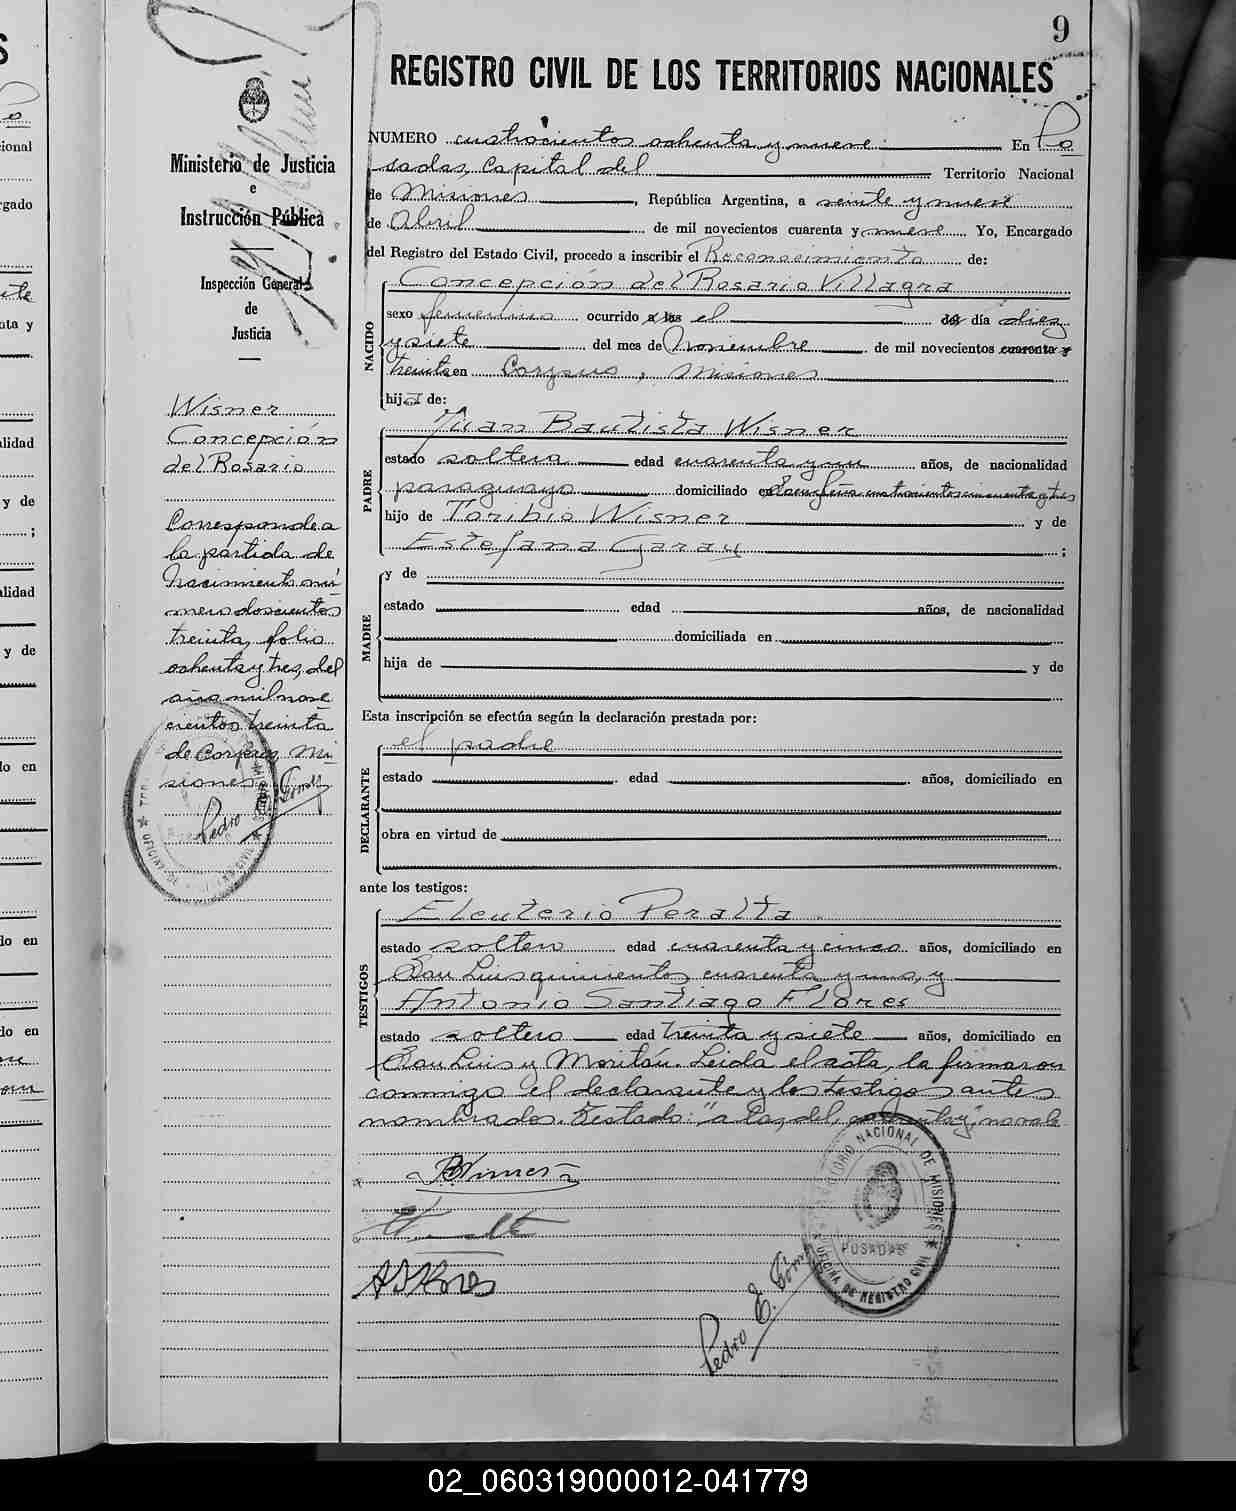 9
REGISTRO CIVIL DE LOS TERRITORIOS NACIONALES
NUMERO cuatrocientos ochenta y nueve En Po
sadas, Capital del Territorio Nacional
de Misiones, República Argentina, a veinte y nueve
de Abril de mil novecientos cuarenta y nueve Yo, Encargado
del Registro del Estado Civil, procedo a inscribir el Reconocimiento de:
NACIDO
Concepción del Rosario Villagra
sexo femenino ocurrido a las el del día diez
y siete del mes de Noviembre de mil novecientos cuarenta y
treinta en Corpus, Misiones
hija de:
PADRE
Juan Bautista Wisner
estado soltero edad cuarenta y un años, de nacionalidad
paraguayo domiciliado en cuatrocientos cincuenta y tres
hijo de Toribio Wisner y de
Estefana Garay;
MADRE
y de
estado edad años, de nacionalidad
domiciliada en
hija de y de
Esta inscripción se efectúa según la declaración prestada por:
DECLARANTE
el padre
estado edad años, domiciliado en
obra en virtud de
ante los testigos:
TESTIGOS
Eleuterio Peralta
estado soltero edad cuarenta y cinco años, domiciliado en
San Luis quinientos cuarenta y uno, y
Antonio Santiago Flores
estado soltero edad treinta y siete años, domiciliado en
San Luis y Moritán. Leida el acta, la firmaron
conmigo el declarante y los testigos antes
nombrados. Testado: "a las, del, cuarenta y", no vale
JBWisner
ASFlores
Pedro E. Góm
TERRITORIO NACIONAL DE MISIONES
POSADAS
OFICINA DE REGISTRO CIVIL
Ministerio de Justicia
e
Instrucción Pública
Inspección General
de
Justicia
Wisner
Concepción
del Rosario
Corresponde a
la partida de
Nacimiento nú
mero doscientos
treinta, folio
ochenta y tres, del
año mil nove
cientos treinta
de Corpus, Mi
siones
Pedro E. Gómez
02_060319000012-041779